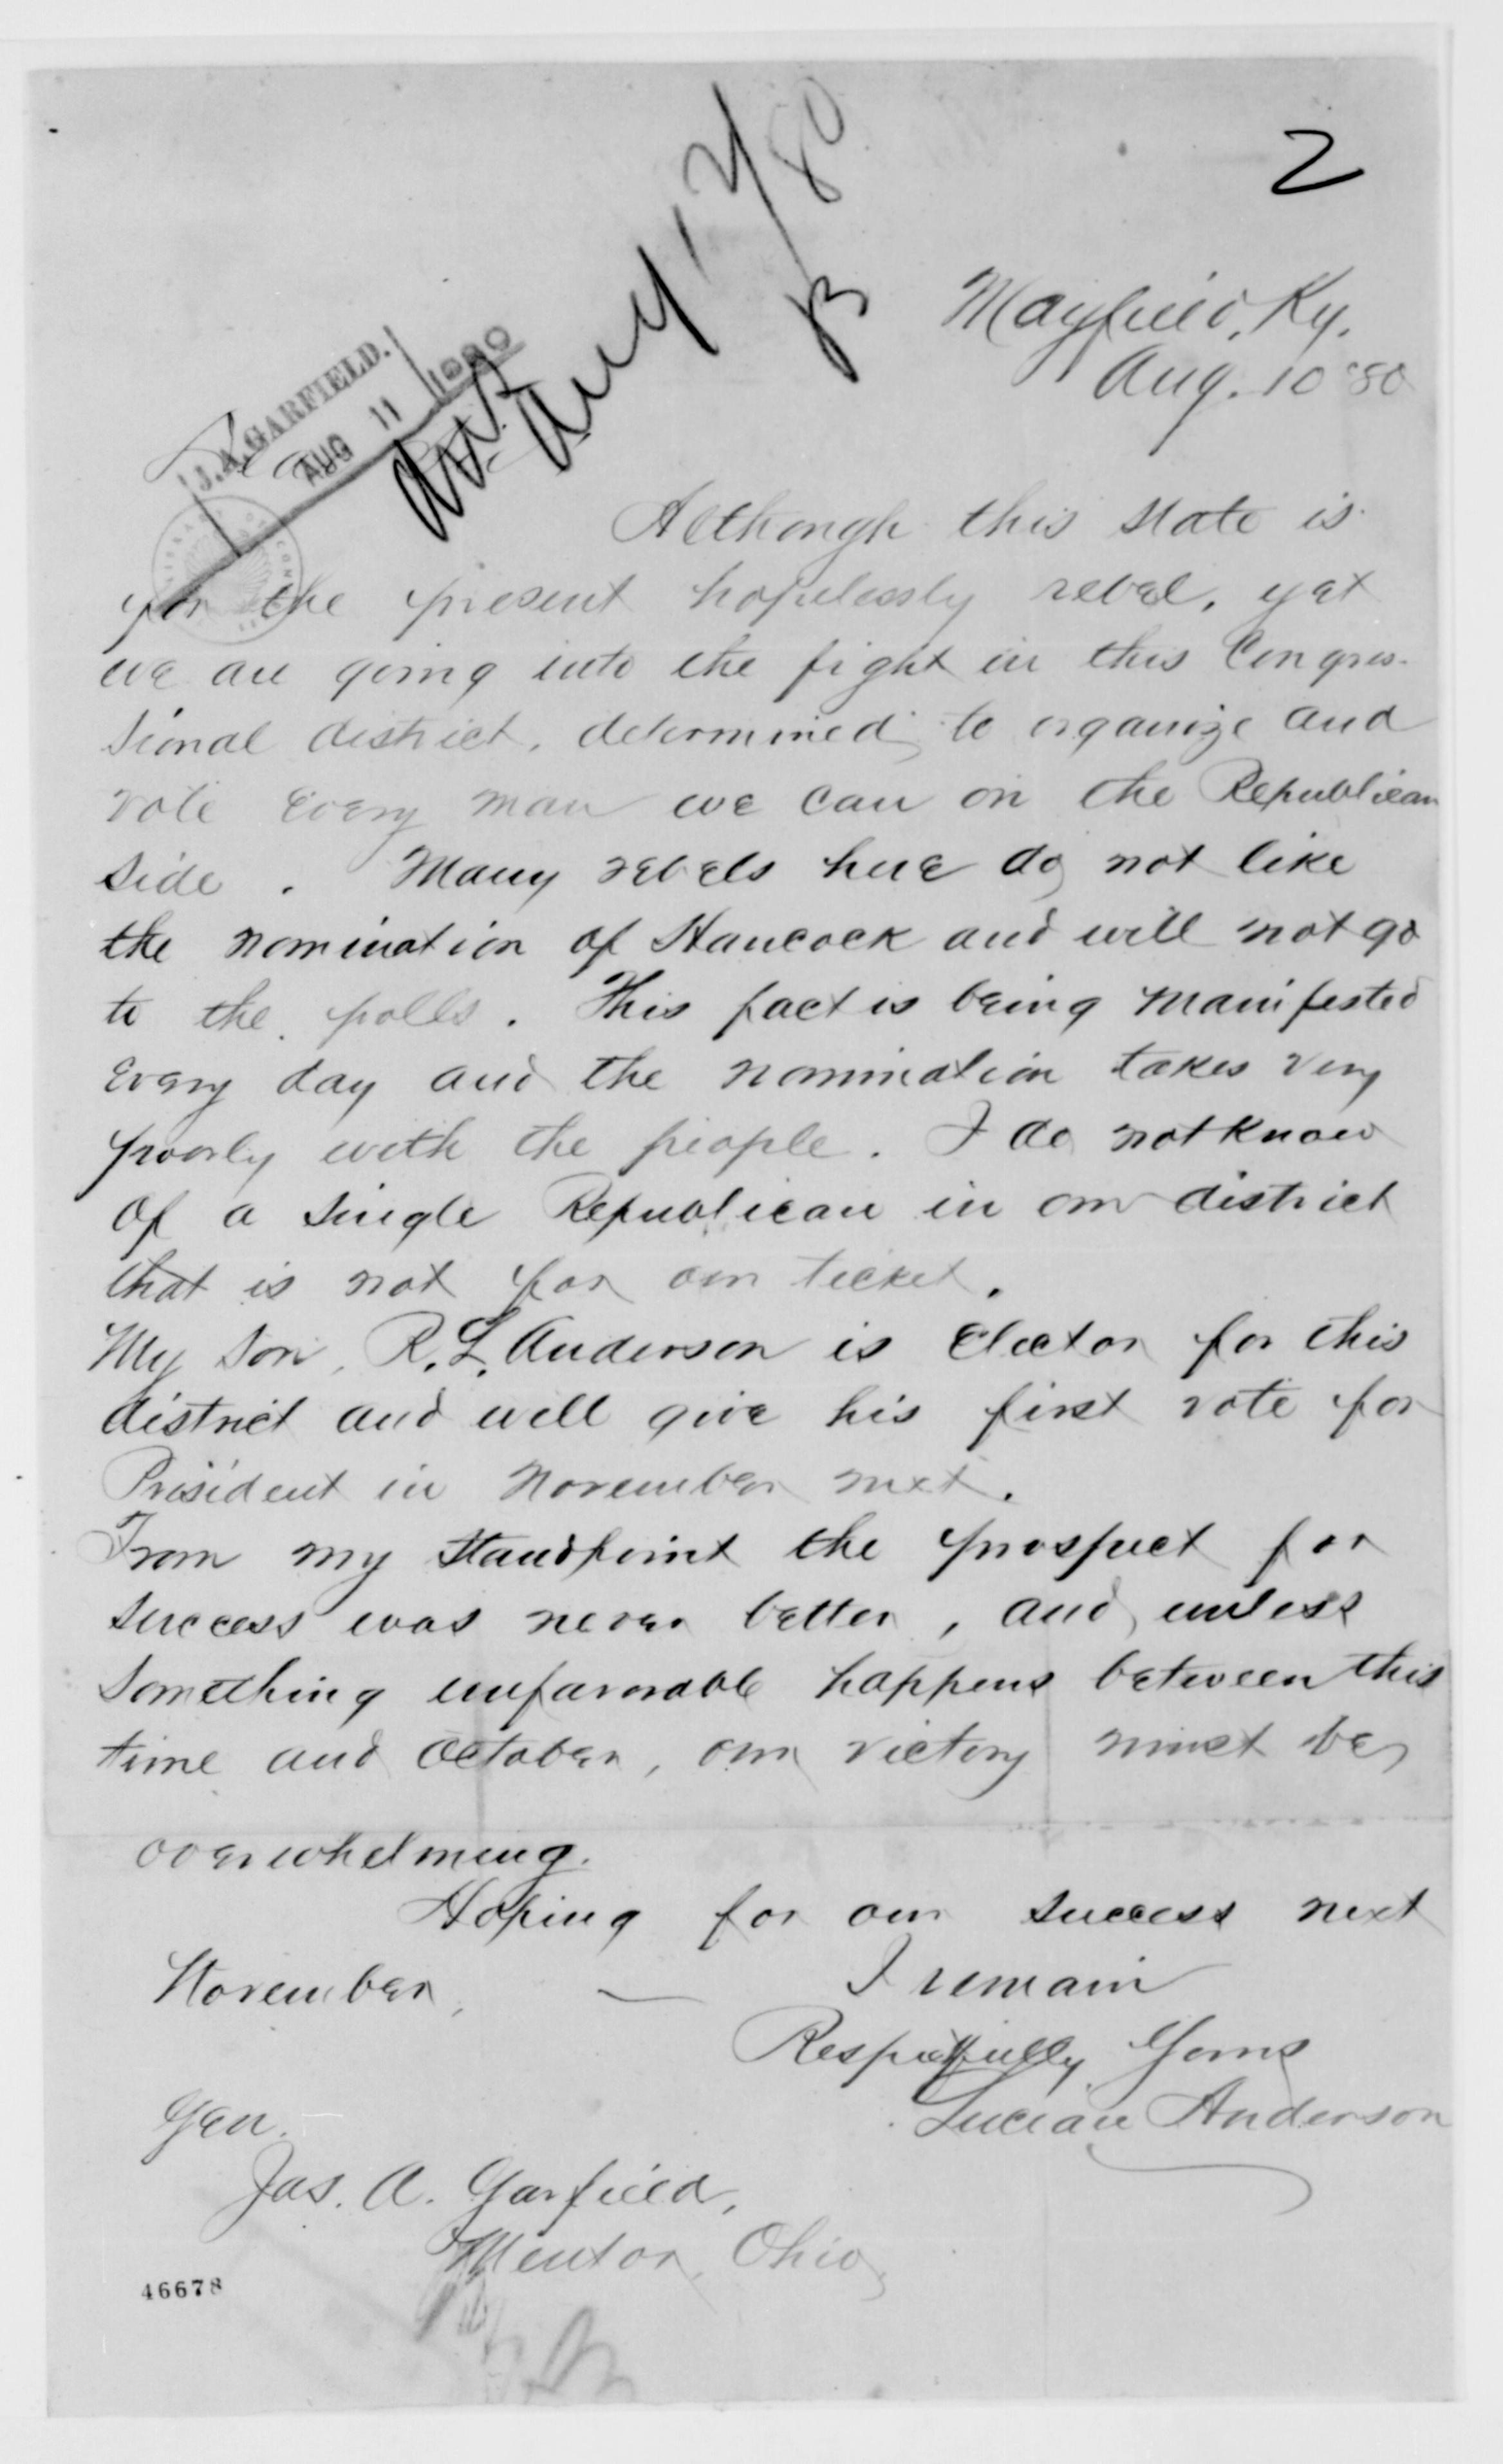 2
Ans Aug 12/80
B
Mayfield, Ky.
Aug. 10 '80
J. A. GARFIELD.
AUG 11 1880
Although this state is
for the present hopelessly rebel, yet
we are going into the fight in this Congres-
sional district, determined to organize and
vote every man we can on the Republican
side. Many rebels here do not like
the nomination of Hancock and will not go
to the polls. This fact is being manifested
every day and the nomination takes very
poorly with the people. I do not know
of a single Republican in our district
that is not for our ticket.
My son, R. L. Anderson is Elector for this
district and will give his first vote for
President in November next.
From my standpoint the prospect for
success was never better, and, unless
something unfavorable happens between this
time and October, our victory must be
overwhelming.
Hoping for our success next
November, — I remain
Respectfully Yours
Lucian Anderson
Gen.
Jas. A. Garfield,
Mentor, Ohio
46678